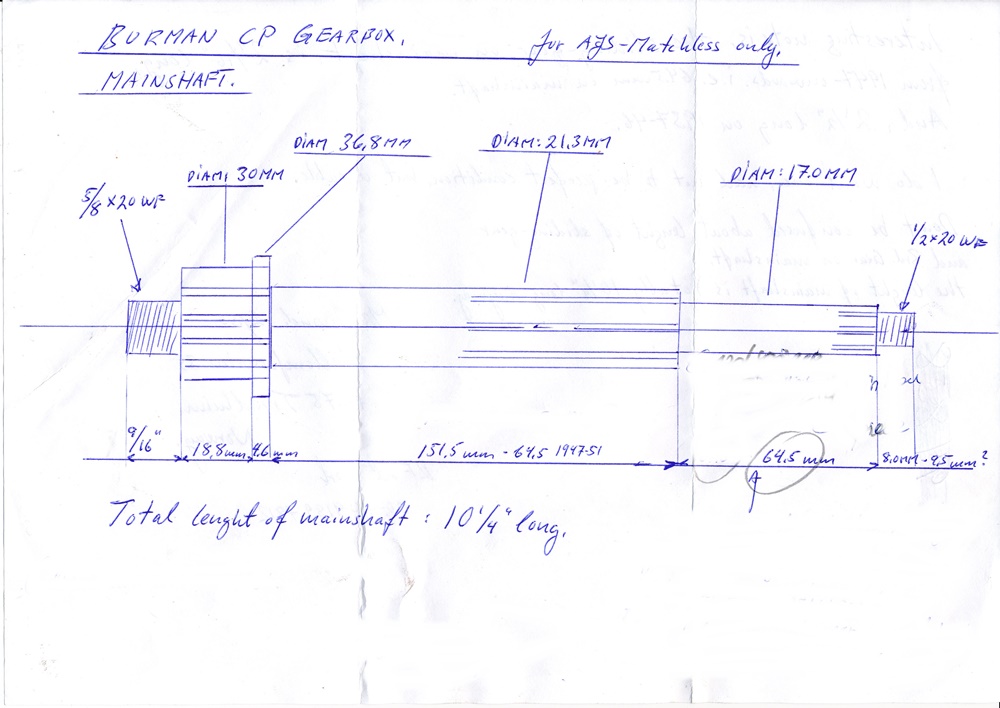 BURMAN CP GEARBOX. for AJS-Matchless only.
MAINSHAFT.
DIAM 36,8MM
DIAM: 21.3MM
DIAM: 30MM
DIAM: 17.0MM
5/8 x 20 WF
1/2 x 20 WF
9/16"
18,8mm
4.6mm
151,5 mm - 64,5 1947-51
64.5 mm
8.0MM - 9,5mm?
Total lenght of mainshaft : 10 1/4" long.